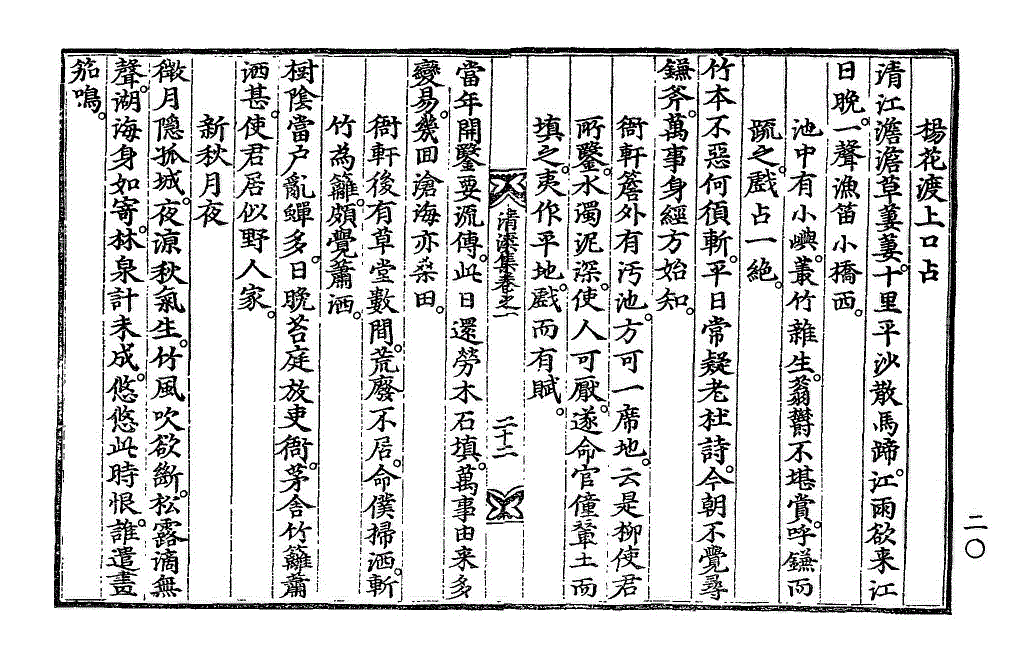 楊花渡上口占
清江澹澹草萋萋。十里平沙散馬蹄。江雨欲来江
日晩。一聲漁笛小橋西。
池中有小嶼。叢竹雜生。蓊鬱不堪賞。呼鎌而
䟽之。戱占一絶。
竹本不惡何須斬。平日常疑老杜詩。今朝不覺尋
鎌斧。萬事身經方始知。
衙軒簷外有汚池。方可一席地。云是柳使君
所鑿。水濁泥深。使人可厭。遂命官僮輦土而
填之。夷作平地。戱而有賦。
清溪集卷之一
二十二
當年開鑿要流傳。此日還勞木石填。萬事由来多
變易。幾回滄海亦桑田。
衙軒後有草堂數間。荒廢不居。命僕掃洒。斬
竹為籬。頗覺蕭洒。
樹陰當户亂蟬多。日晩苔庭放吏衙。茅舍竹籬蕭
洒甚。使君居似野人家。
新秋月夜
微月隱孤城。夜凉秋氣生。竹風吹欲斷。松露滴無
聲。湖海身如寄。林泉計未成。悠悠此時恨。誰遣畫
笳鳴。
二〇